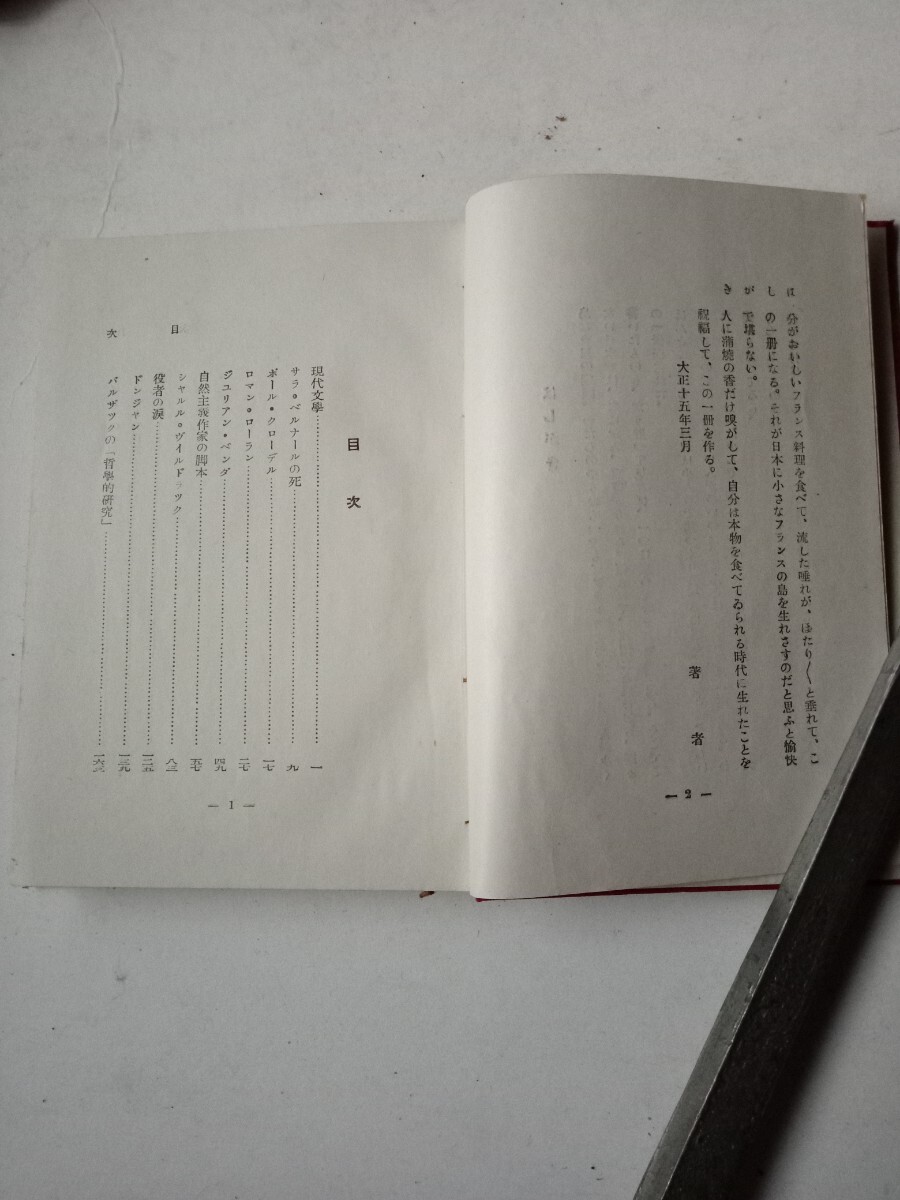 はしがき
分がおいしいフランス料理を食べて、流した唾れが、ほたり〳〵と垂れて、こ
の一冊になる。それが日本に小さなフランスの島を生れさすのだと思ふと愉快
で堪らない。
人に蒲燒の香だけ嗅がして、自分は本物を食べてゐられる時代に生れたことを
祝福して、この一冊を作る。
大正十五年三月
著者
— 2 —
目次
現代文學………一
サラ・ベルナールの死………九
ポール・クローデル………一七
ロマン・ローラン………二七
ジユリアン・ベンダ………四九
自然主義作家の脚本………五七
シャルル・ヴイルドラツク………八三
役者の涙………一二五
ドンジヤン………一三九
バルザツクの「哲學的研究」………一六三
目次
— 1 —